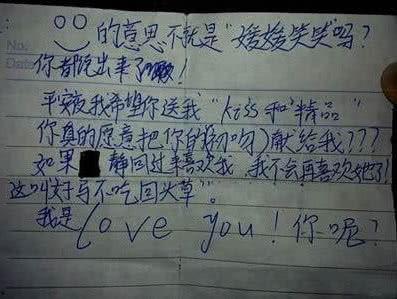 No.
Date
的意思不就是"嫒嫒笑笑"吗?
你都说出来了!
平安夜我希望你送我"kiss和精品"
你真的愿意把你的初吻)献给我???
如果 静回过来喜欢我,我不会再喜欢她了!
这叫好马不吃回头草"。
我是Love you!你呢?